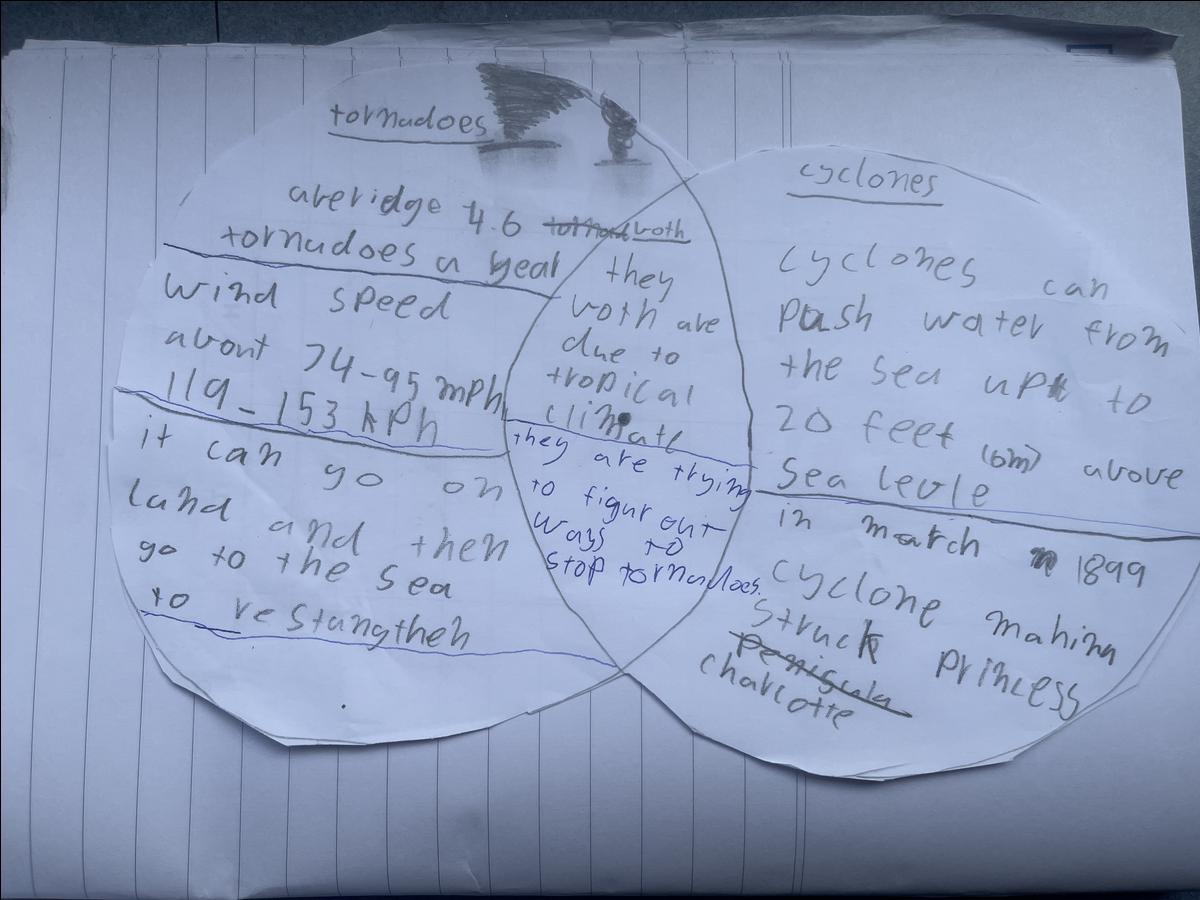 tornadoes
averidge 4.6
tornadoes a year
wind speed
about 74-95 mph
119-153 kph
it can go on
land and then
go to the sea
to restungthen
both
they
both are
due to
tropical
climate
they are trying
to figur out
ways to
stop tornadoes.
cyclones
cyclones can
push water from
the sea up to
20 feet (6m) above
sea levle
in march 1899
cyclone mahina
struck princess
penisula
charlotte